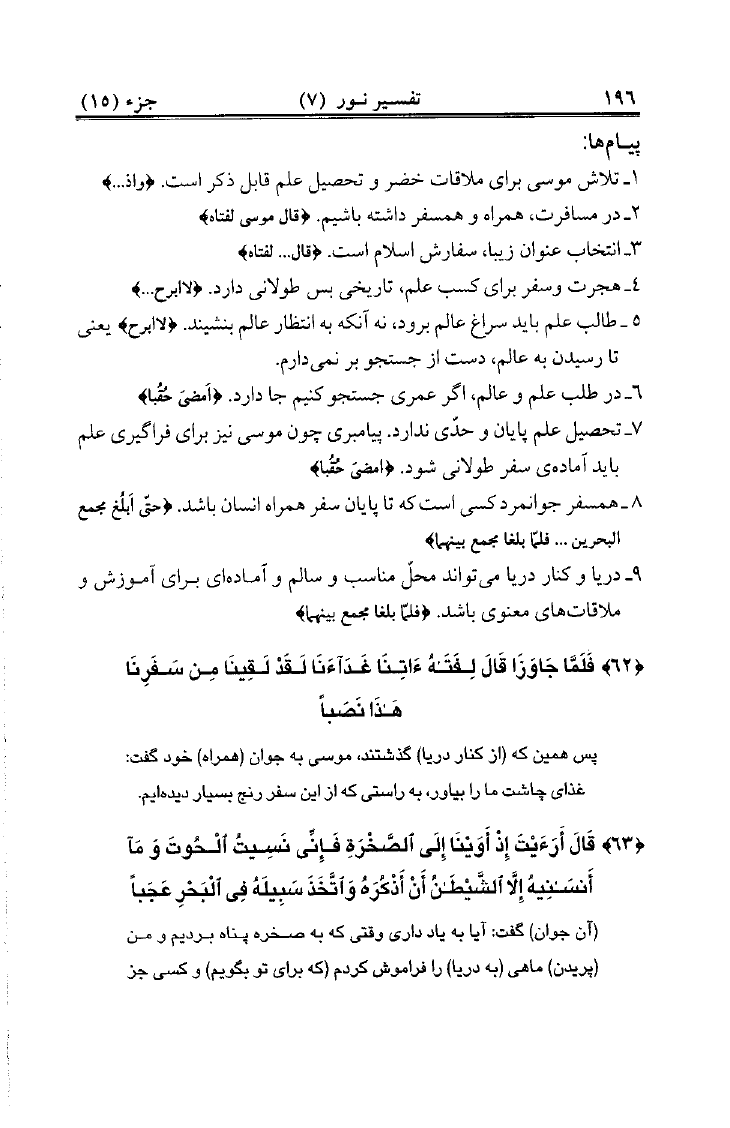 ١٩٦ تفسیر نـور (٧) جزء (١٥)
پیـام‌ها:
١ـ تلاش موسی برای ملاقات خضر و تحصیل علم قابل ذکر است. ﴿واذ...﴾
٢ـ در مسافرت، همراه و همسفر داشته باشیم. ﴿قال موسی لفتاه﴾
٣ـ انتخاب عنوان زیبا، سفارش اسلام است. ﴿قال... لفتاه﴾
٤ـ هجرت وسفر برای کسب علم، تاریخی بس طولانی دارد. ﴿لاابرح...﴾
٥ ـ طالب علم باید سراغ عالم برود، نه آنکه به انتظار عالم بنشیند. ﴿لاابرح﴾ یعنی
تا رسیدن به عالم، دست از جستجو بر نمی‌دارم.
٦ـ در طلب علم و عالم، اگر عمری جستجو کنیم جا دارد. ﴿أمضیَ حُقُبا﴾
٧ـ تحصیل علم پایان و حدّی ندارد. پیامبری چون موسی نیز برای فراگیری علم
باید آماده‌ی سفر طولانی شود. ﴿امضیَ حُقُبا﴾
٨ ـ همسفر جوانمرد کسی است که تا پایان سفر همراه انسان باشد. ﴿حتّی أبلُغ مجمع
البحرین ... فلمّا بلغا مجمع بینهما﴾
٩ـ دریا و کنار دریا می‌تواند محلّ مناسب و سالم و آماده‌ای بـرای آمـوزش و
ملاقات‌های معنوی باشد. ﴿فلمّا بلغا مجمع بینهما﴾
﴿٦٢﴾ فَلَمَّا جَاوَزَا قَالَ لِـفَتَـٰهُ ءَاتِـنَا غَدَآءَنَا لَـقَدْ لَـقِينَا مِـن سَـفَرِنَا
هَـٰذَا نَصَباً
پس همین که (از کنار دریا) گذشتند، موسی به جوان (همراه) خود گفت:
غذای چاشت ما را بیاور، به راستی که از این سفر رنج بسیار دیده‌ایم.
﴿٦٣﴾ قَالَ أَرَءَيْتَ إِذْ أَوَيْنَا إِلَى ٱلصَّخْرَةِ فَـإِنِّى نَسِـيتُ ٱلْـحُوتَ وَ مَآ
أَنسَـٰنِيهُ إِلَّا ٱلشَّيْطَـٰنُ أَنْ أَذْكُرَهُ وَ ٱتَّخَذَ سَبِيلَهُ فِى ٱلْبَحْرِ عَجَباً
(آن جوان) گفت: آیا به یاد داری وقتی که به صـخره پناه بـردیم و مـن
(پریدن) ماهی (به دریا) را فراموش کردم (که برای تو بگویم) و کسی جز